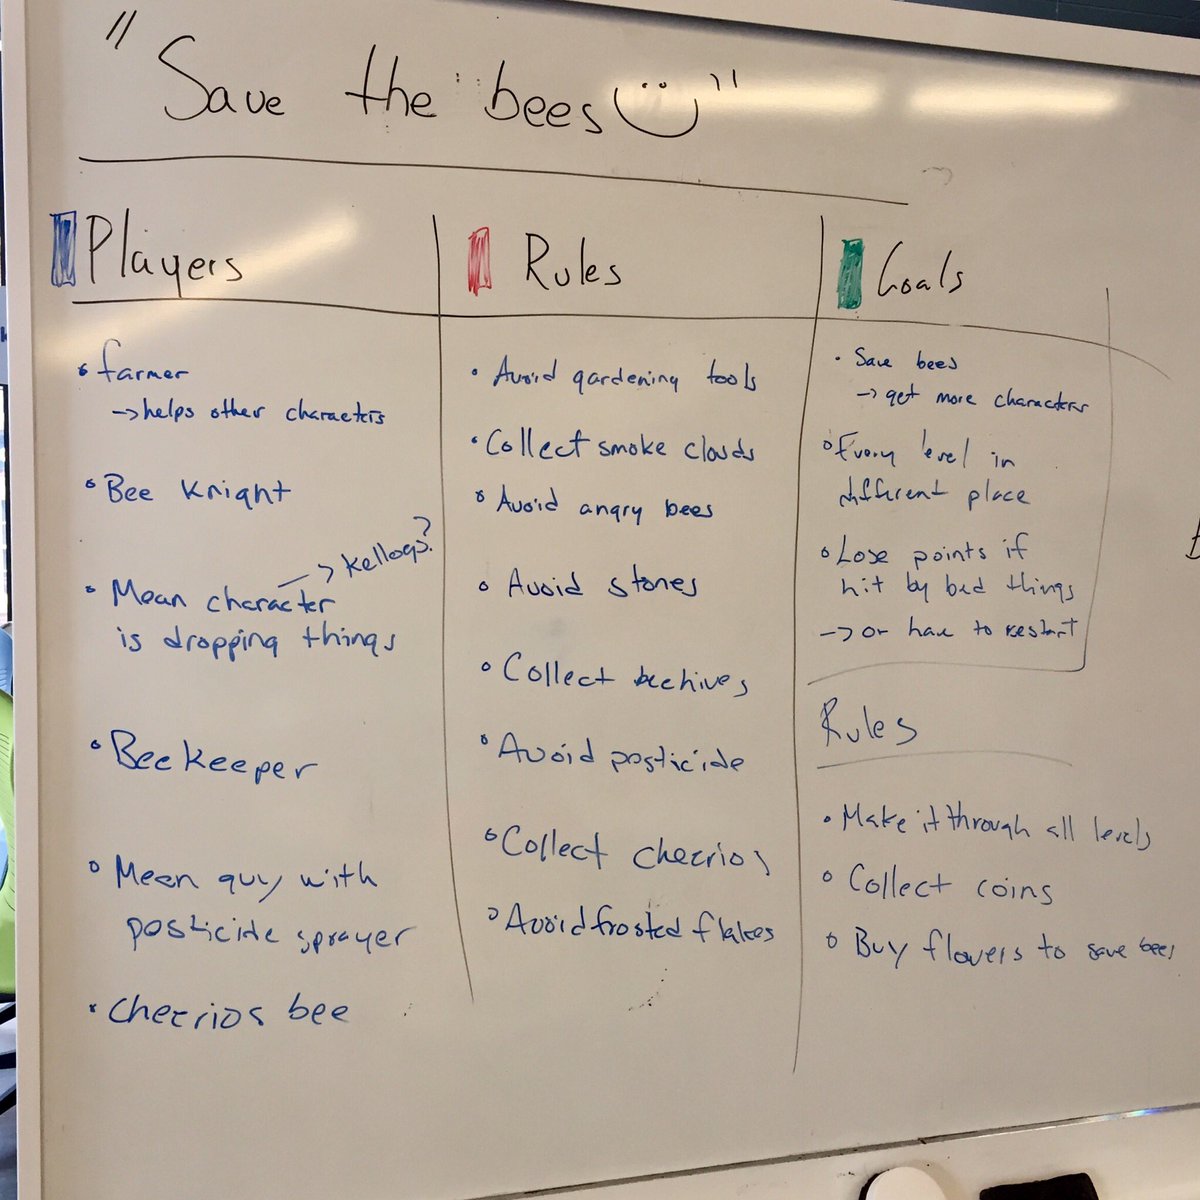 "Save the bees"
Players
• farmer
→ helps other characters
• Bee Knight
• Mean character → kellogs?
is dropping things
• Beekeeper
• Mean guy with
posticide sprayer
• Cheerios bee
Rules
• Avoid gardening tools
• Collect smoke clouds
• Avoid angry bees
• Avoid stones
• Collect beehives
• Avoid posticide
• Collect cheerios
• Avoid frosted flakes
Goals
• Save bees
→ get more characters
• Every level in
different place
• Lose points if
hit by bad things
→ or have to restart
Rules
• Make it through all levels
• Collect coins
• Buy flowers to save bees